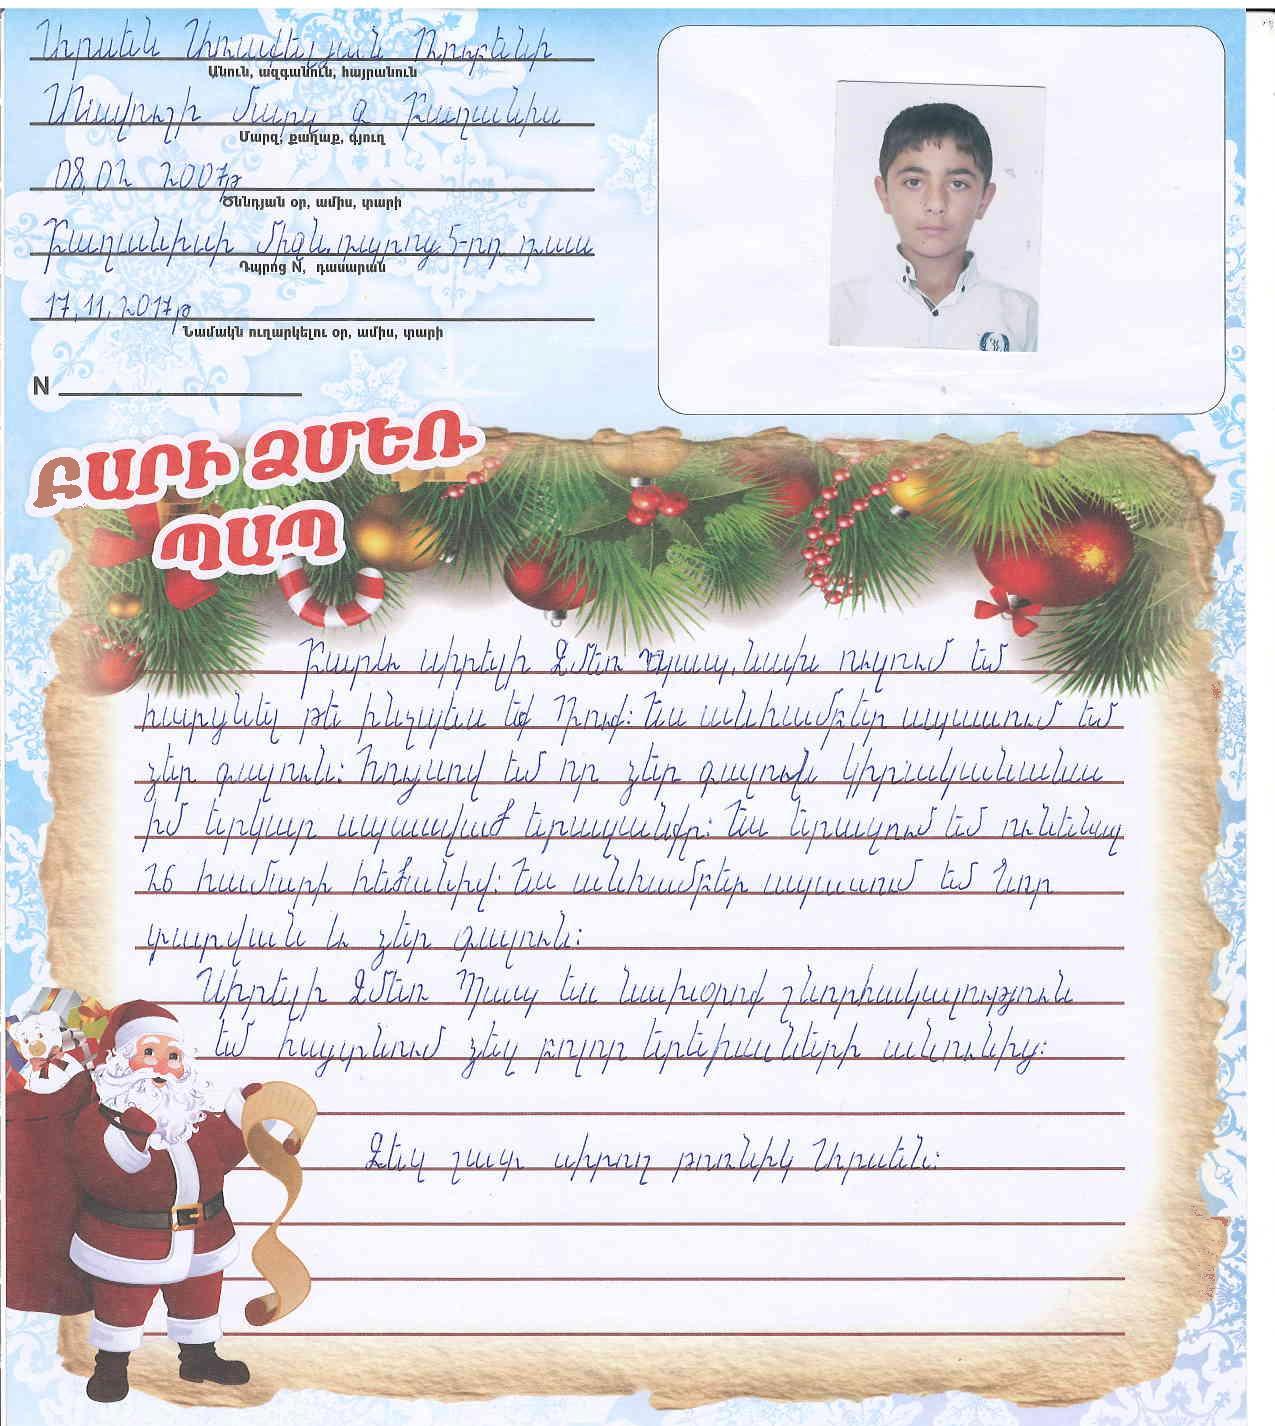 Արսեն Առաքելյան Ռուբենի
Անուն, ազգանուն, հայրանուն
Տավուշի մարզ գ Բաղանիս
Մարզ, քաղաք, գյուղ
08.02 2007թ
Ծննդյան օր, ամիս, տարի
Բաղանիսի միջն. դպրոց 5-րդ դաս
Դպրոց N, դասարան
17.11.2017թ
Նամակն ուղարկելու օր, ամիս, տարի
N
ԲԱՐԻ ՁՄԵՌ
ՊԱՊ
Բարև սիրելի Ձմեռ պապ, նախ ուզում եմ
հարցնել թե ինչպես եք Դուք: Ես անհամբեր սպասում եմ
ձեր գալուն: Հույսով եմ որ ձեր գալուն կիրականանա
իմ երկար սպասված երազանքը: Ես երազում եմ ունենալ
26 համարի հեծանիվ: Ես անհամբեր սպասում եմ Նոր
տարվան և ձեր գալուն:
Սիրելի Ձմեռ Պապ ես նախօրոք շնորհակալություն
եմ հայտնում ձեզ բոլոր երեխաների անունից:
Ձեզ շատ սիրող թոռնիկ Արսեն: